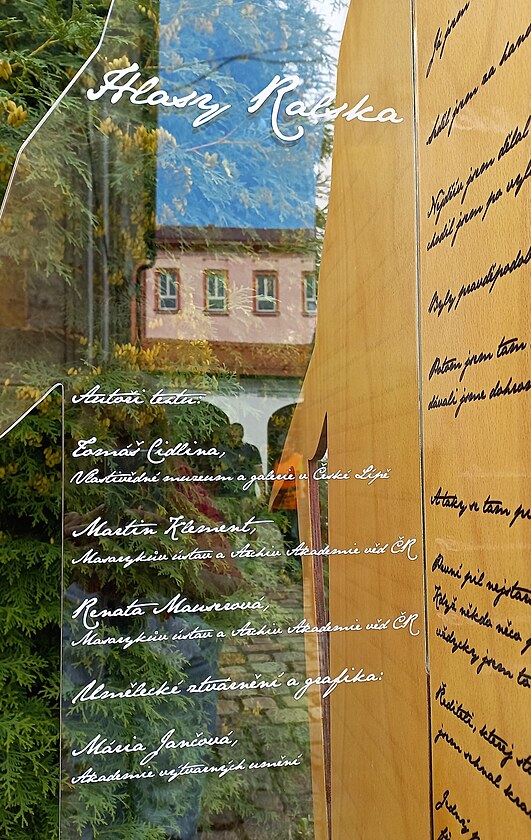 Hlasy Ralska
Autoři textu:
Tomáš Cidlina,
Vlastivědné muzeum a galerie v České Lípě
Martin Klement,
Masarykův ústav a Archiv Akademie věd ČR
Renata Mauserová,
Masarykův ústav a Archiv Akademie věd ČR
Umělecké ztvárnění a grafika:
Mária Jančová,
Akademie výtvarných umění
Já jsem
jsem za
Nejdřív jsem dělal
chodil jsem po
Byly
Potom jsem tam
dávali jsme
A taky se tam
První půl
Když někdo něco
vždycky jsem
Ředitel, který
jsem sehnal